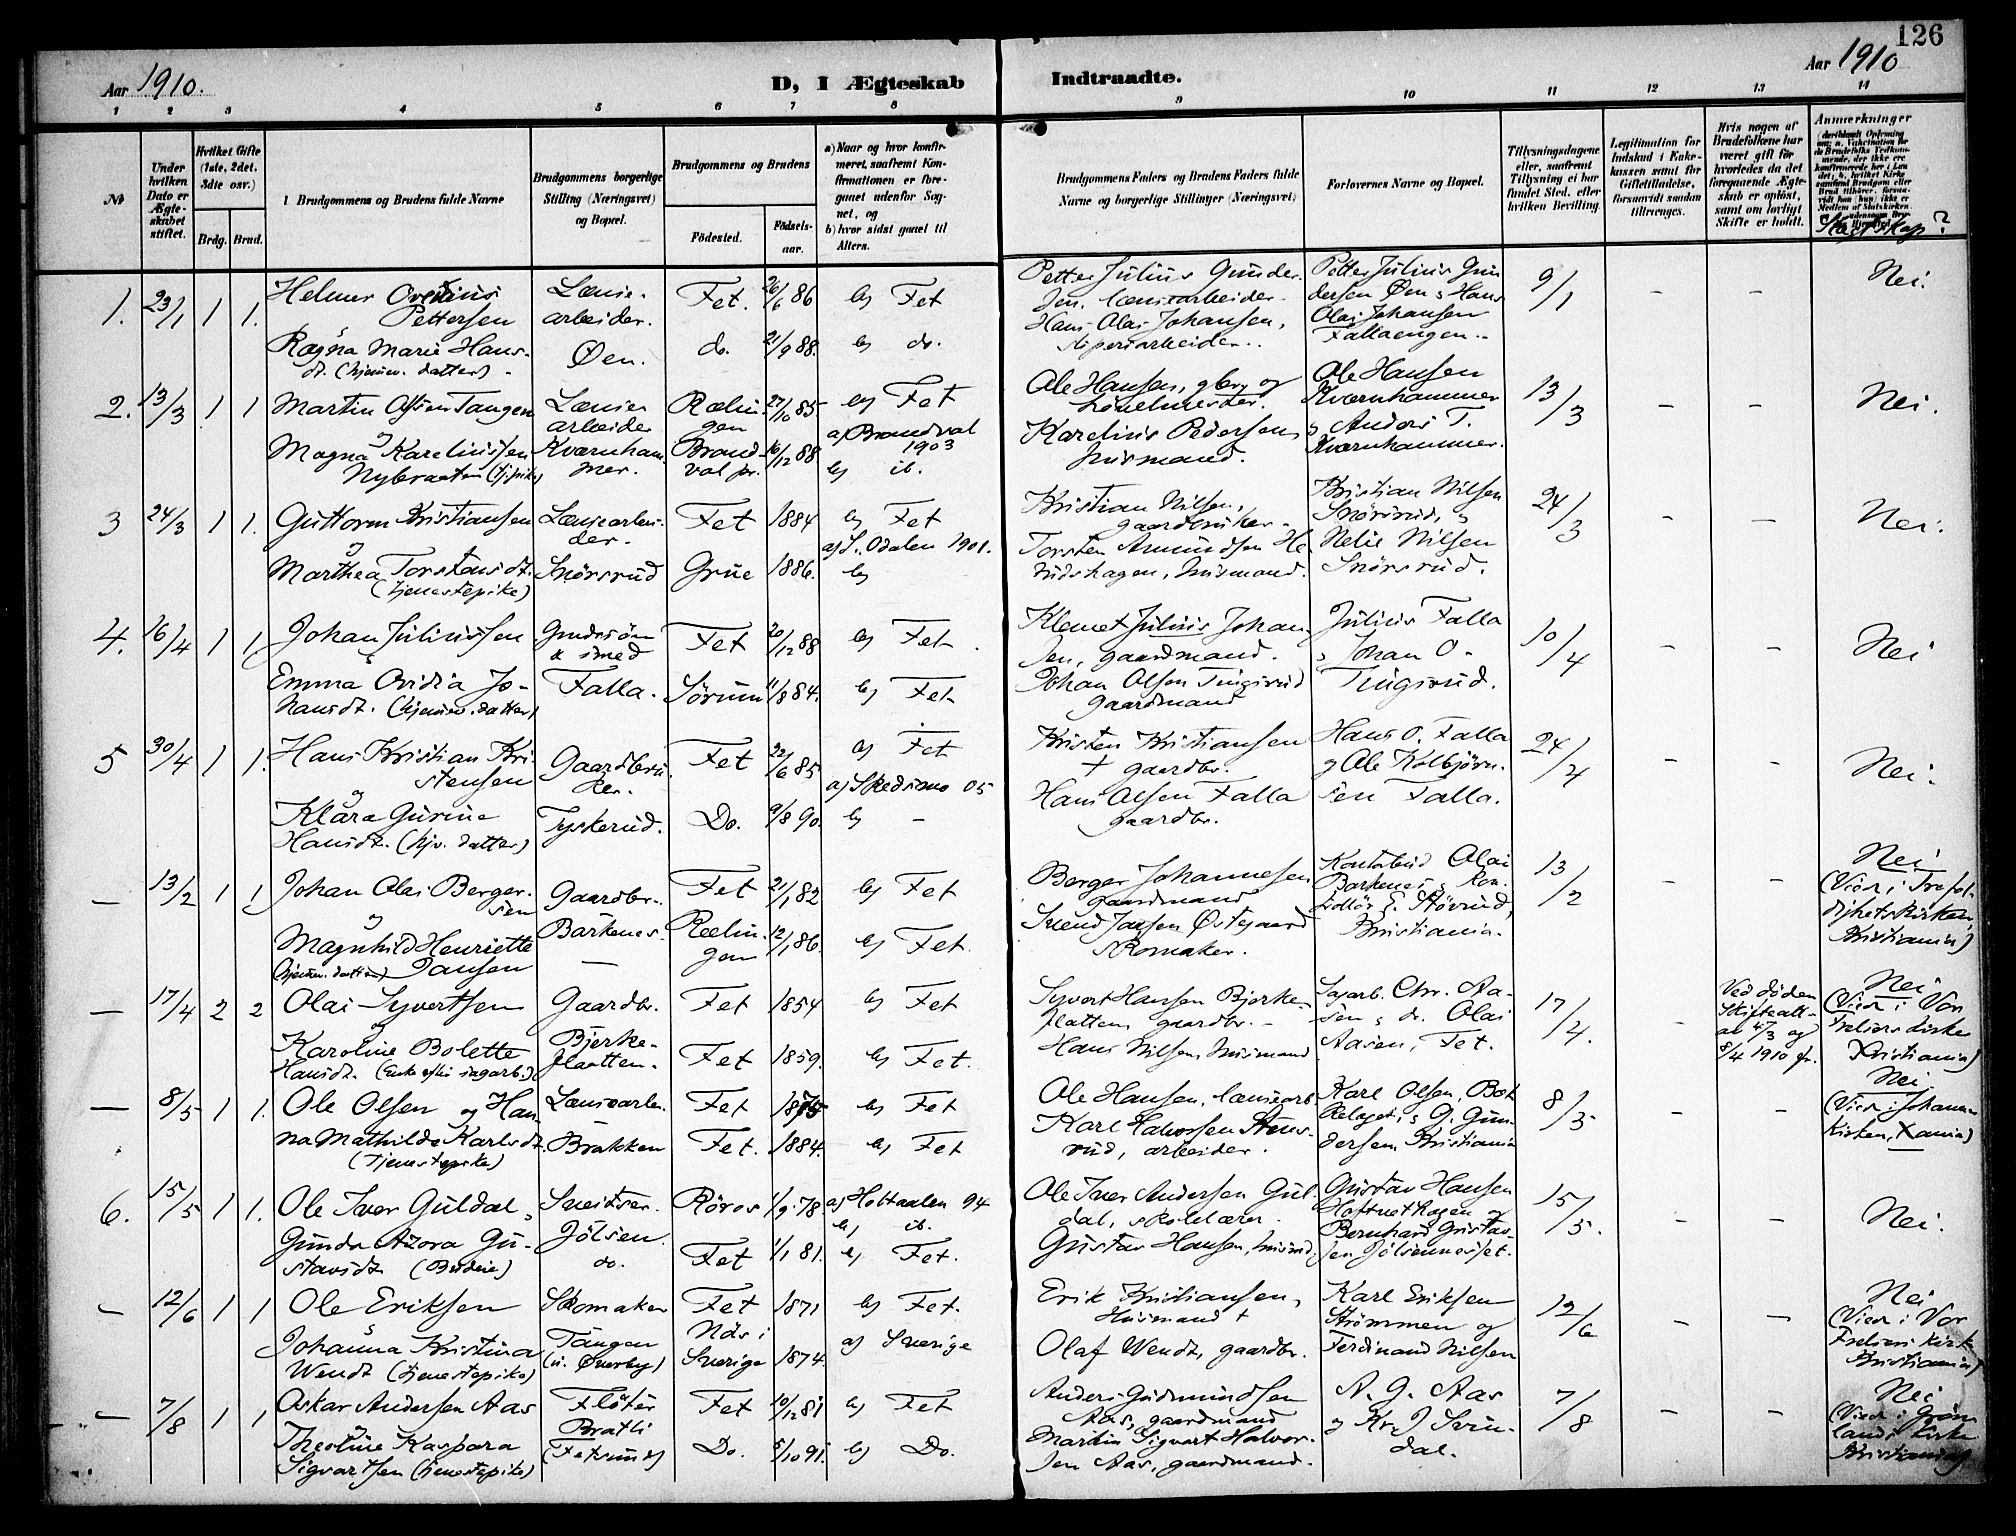 126
Aar 1910.
D, I Ægteskab Indtraadte.
Aar 1910
1 2 3 4 5 6 7 8 9 10 11 12 13 14
No
Under hvilken Dato er Ægteskabet stiftet.
Hvilket Gifte (1ste, 2det, 3die osv.)
Brdg. Brud.
Brudgommens og Brudens fulde Navne
Brudgommens borgerlige Stilling (Næringsvei) og Bopæl.
Brudgommens og Brudens
Födested.
Födselsaar.
a) Naar og hvor konfirmeret, saafremt Konfirmationen er foregaaet udenfor Sognet, og
b) hvor sidst gaaet til Alters.
Brudgommens Faders og Brudens Faders fulde Navne og borgerlige Stillinger (Næringsvei)
Forlovernes Navne og Bopæl.
Tillysningsdagene eller, saafremt Tillysning ei har fundet Sted, efter hvilken Bevilling.
Legitimation for Indskud i Enkekassen samt for Giftetilladelse, forsaavidt saadan tiltrænges.
Hvis nogen af Brudefolkene har været gift før, hvorledes da det foregaaende Ægteskab er oplöst, samt om lovligt Skifte er holdt.
Anmærkninger
Slegtskap?
1. 23/1 1 1. Helmer Pettersen Lænsearbeider. Fet. 26/6 86 b) Fet Petter Julius Gundersen. lænsearbeider. Petter Julius Gundersen Øen & Hans Olai Johansen Fallaengen. 9/1 – – Nei.
Ragna Marie Hansdt. (hjemmev. datter) Øen. do. 21/9 88. b) do. Hans Olai Johansen,
2. 13/3 1 1 Martin Olsen Tangen Lænsearbeider Rælingen 27/10 85 b) Fet Ole Hansen, Ole Hansen Kvernhammer & Anders T. Kvernhammer. 13/3 – – Nei.
og Magna Kareliussen Nybraaten Kvernhammer. Brandval pr. 16/12 88 a) Brandval 1903 b) ib. Karelius Pedersen, husmand.
3 24/3 1 1. Guttorm Kristiansen Lænsearbeider. Fet 1884 b) Fet Kristian Nilsen, gaardbruker. Kristian Nilsen Snörsrud, & Nelie Nilsen Snörsrud. 24/3 – – Nei.
og Marthea Torstensdt. (tjenestepike) Snörsrud Grue 1886. a) S. Odalen 1901. b) Torsten Amundsen husmand.
4. 16/4 1 1 Johan Juliussen Gaardssön & smed Fet 20/12 88 b) Fet Klemet Julius Johansen, gaardmand. Julius Falla & Johan O. Tingsrud. 10/4 – – Nei
& Emma Ovidia Johansdt. (hjemmev. datter) Falla. Sörum 11/8 84. b) Fet Johan Olsen Tingsrud gaardmand
5 30/4 1 1. Hans Kristian Kristensen Gaardbruker. Fet 22/6 85 b) Fet Kristen Kristiansen † gaardbr. Hans O. Falla og Ole Kolbjörnsen Falla. 24/4 – – Nei.
og Klara Gurine Hansdt. (hjv. datter) Tyskerud. Do. 9/8 90. a) Skedsmo 05 b) – Hans Olsen Falla gaardbr.
– 13/2 1 1 Johan Olai Bergersen Gaardbr. Fet 21/1 82 b) Fet Berger Johannesen gaardmand Kontorbud Olai Barkenes & E. Stövrud, Kristiania. 13/2 – – Nei (Viet i Trefoldighetskirken, Kristiania)
& Magnhild Henriette Jansen (hjemmev. datter) Barkenes – Rælingen 12/1 86. b) Fet. Svend Jansen Østegaard skomaker.
– 17/4 2 2 Olai Syvertsen Gaardbr. Fet 1854 b) Fet Syvert Hansen Bjerkeflatten gaardbr. – Sagarb. Chr. Aasen & do. Olai Aasen, Fet. 17/4. – Ved döden 8/4 1910 Nei (Viet i Vor Frelsers kirke Kristiania)
& Karoline Bolette Hansdt. (Enke efter sagarb.) Bjerkeflaatten. Fet 1859. b) Fet. Hans Nilsen, husmand
– 8/5 1 1. Ole Olsen og Hanna Mathilde Karlsdt. (Tjenestepike) Lænsearbei. Brakken Fet b) Fet Ole Hansen, lænsearb. Karl Olsen, & G. Gundersen, Kristiania 8/5 – – Nei (Viet i Johannes Kirken, Xania)
Fet. 1884. b) Fet Karl Halvorsen Stensrud, arbeider.
6. 15/5 1 1. Ole Iver Guldal & Sveitser. Röros 1/9 78. a) Holtaalen 94 b) ib. Ole Iver Andersen Guldal, skolelærer. Gustav Hansen og Bernhard Gustavsen 15/5. – – Nei.
Gunda Azora Gustavsdt. (Budeie) Jölsen do. Fet 1/1 81. b) Fet. Gustav Hansen,
– 12/6 1 1 Ole Eriksen Skomaker Fet 1871 b) Fet. Erik Kristiansen, Husmand † Karl Eriksen Strömmen og Ferdinand Nilsen 12/6 – – Nei (Viet i Vor Frelsers kirke Kristiania)
& Johanna Kristina Wendt (tjenestepike) Tangen (u. Øverby) Näs i Sverige 1874. a) Sverige Olaf Wendt, gaardbr.
– 7/8 1 1 Oskar Andersen Aas Flöter Fet 10/12 81 b) Fet Anders Gudmundsen Aas, gaardmand A. G. Aas og Kr. J. Svindal. 7/8 – – Nei (Viet i Grönlands kirke Kristiania)
& Theoline Kaspara Sigvartsen (tjenestepike) Bratli (Fetsund) Do. 5/10 91. b) Do. Martin Sigvart Halvorsen Aas, gaardmand.